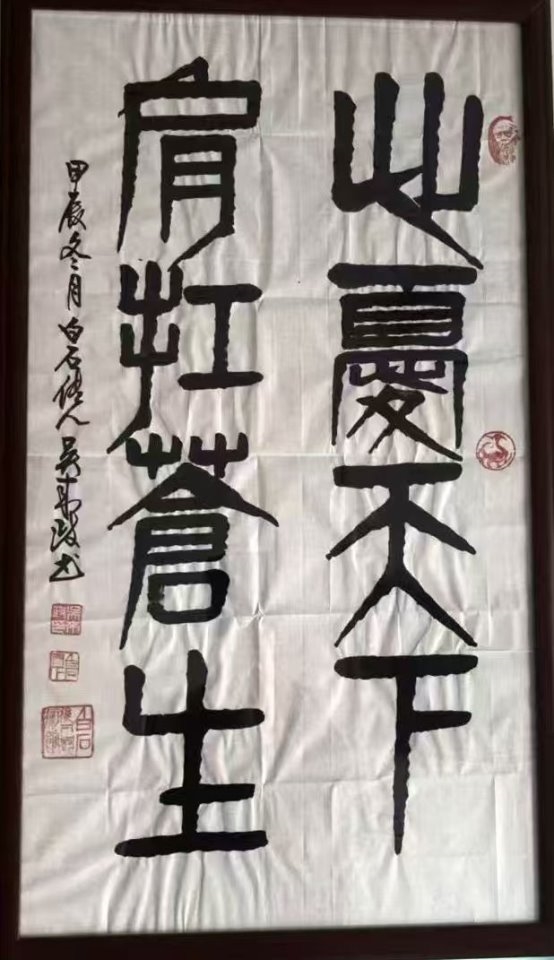 心憂天下
肩扛蒼生
甲辰冬月白石傳人吳書